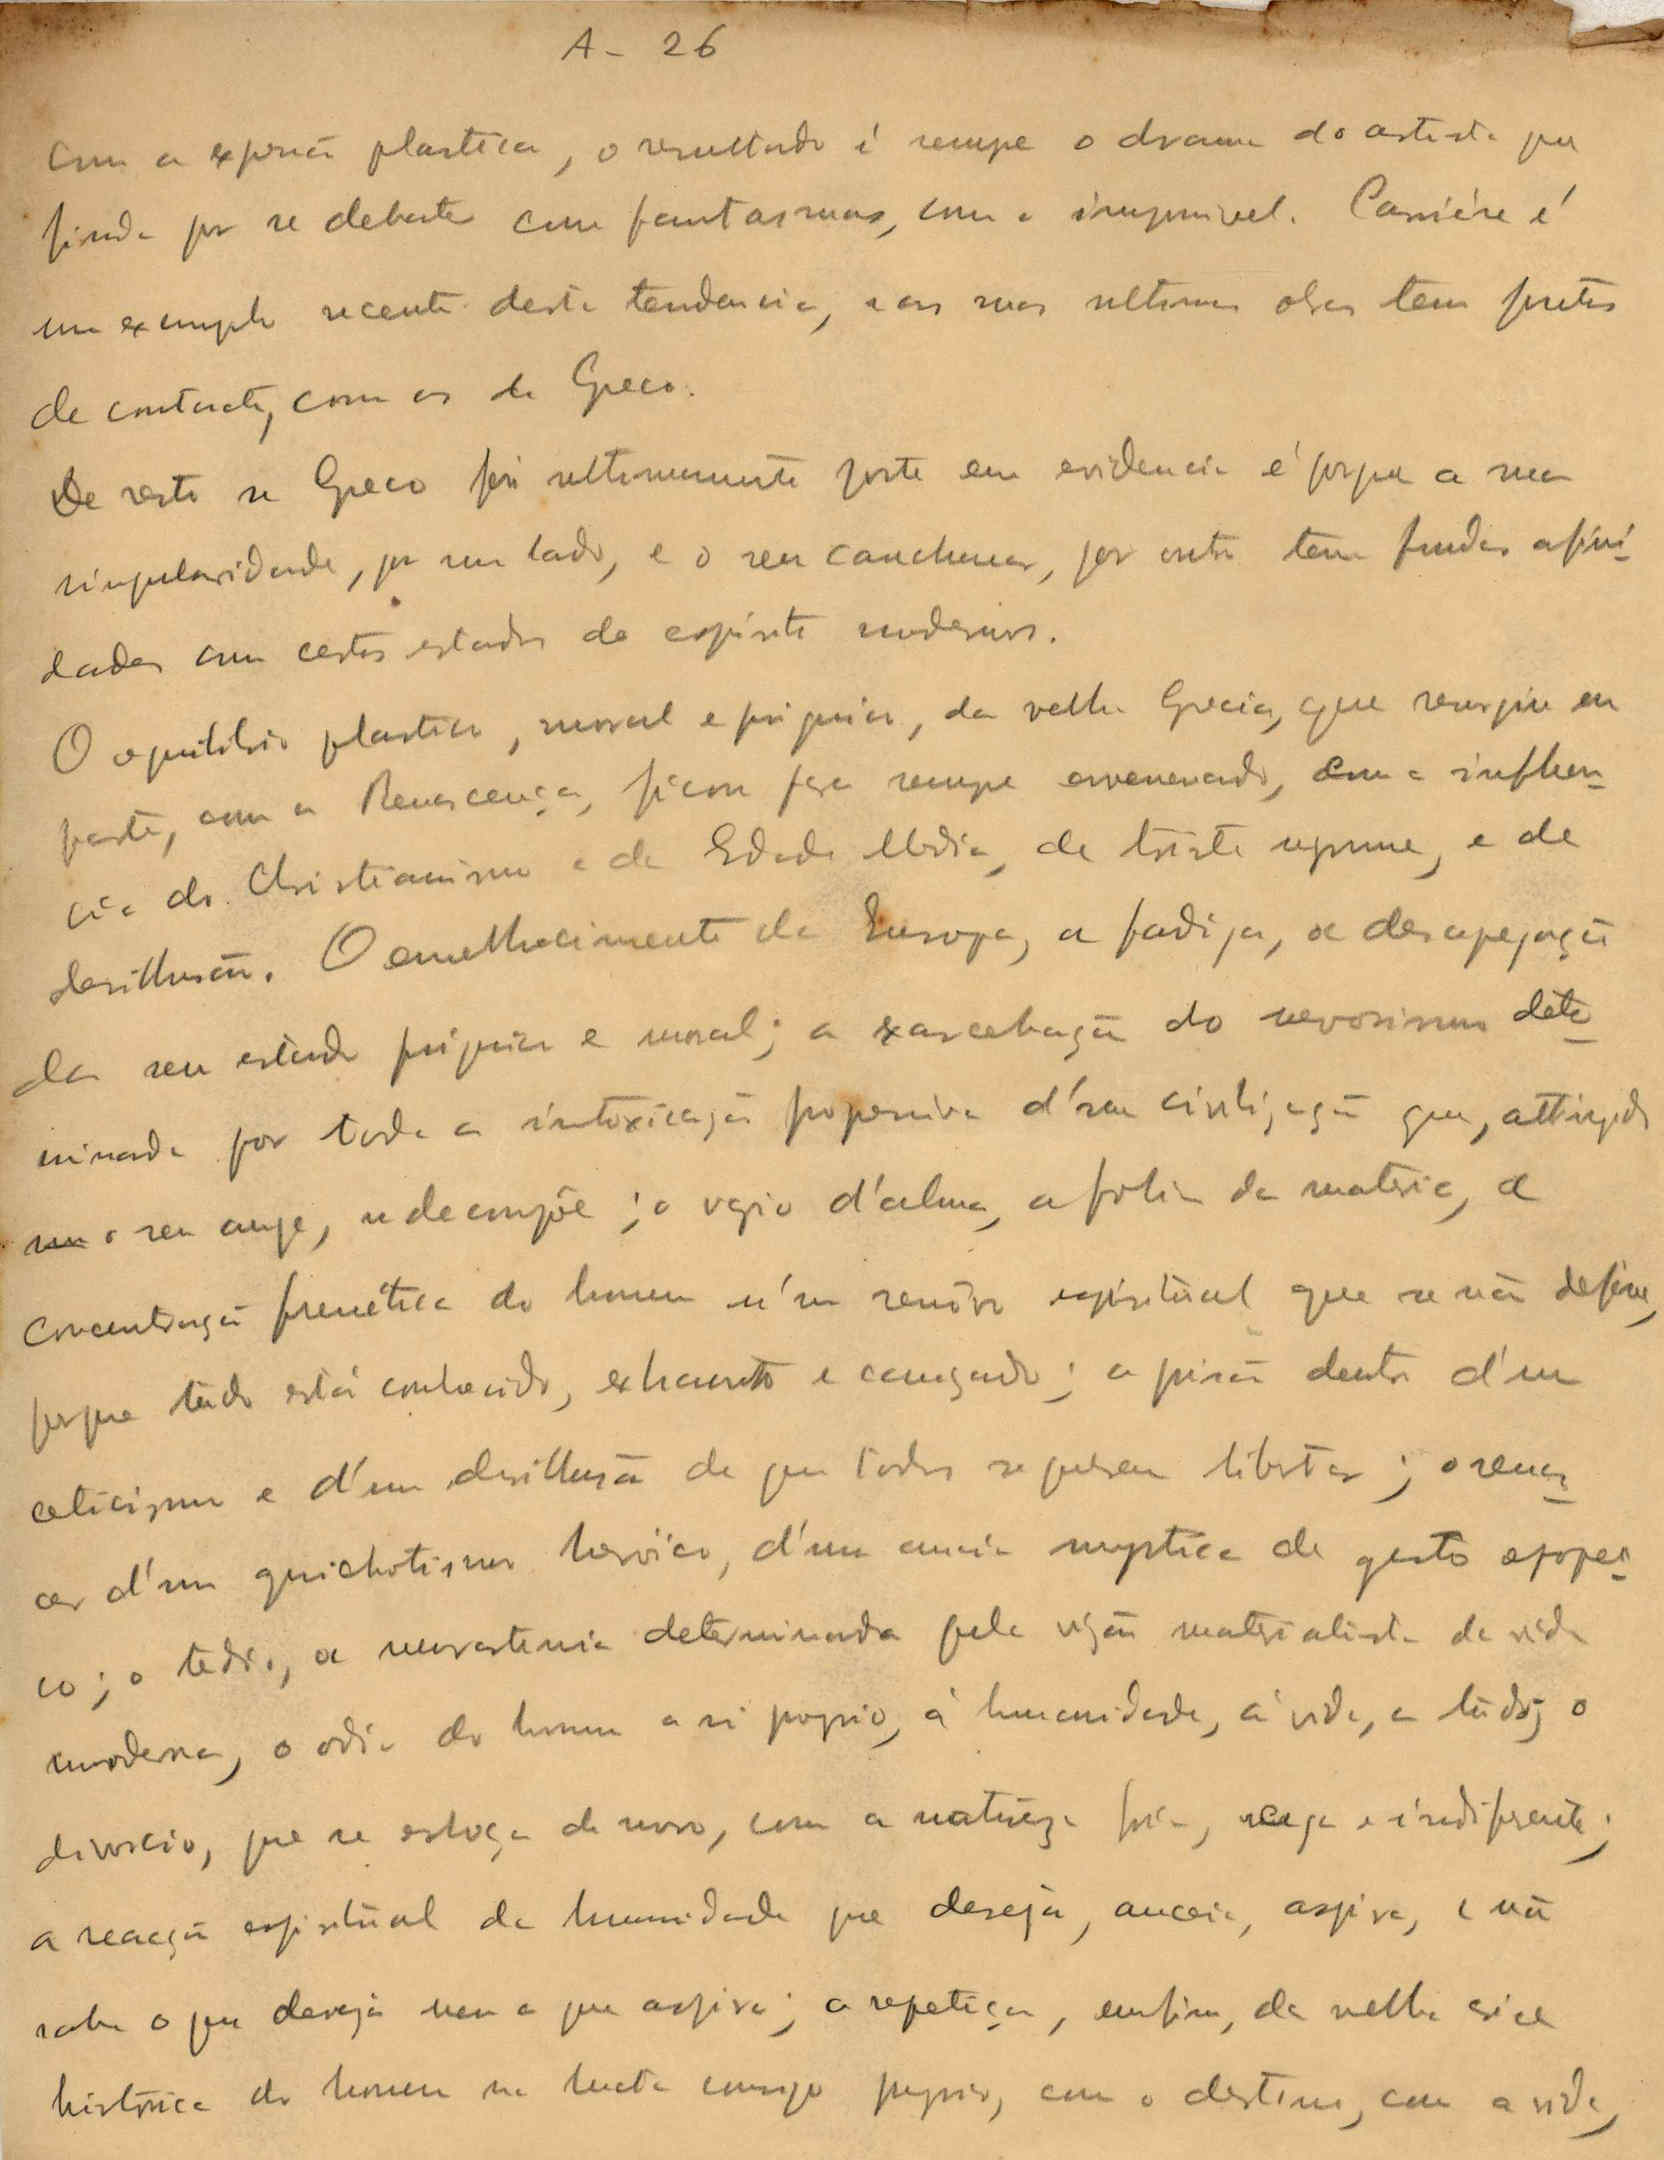 A - 26
com a expresão plastica, o resultado é sempre o drama do artista que
finda por se debater com fantasmas, com o impossivel. Carriére é
um exemplo recente desta tendencia, e as suas ultimas obras tem pontos
de contacto, com as de Greco.
De resto se Greco foi ultimamente posto em evidencia é porque a sua
singularidade, por um lado, e o seu cauchemar, por outro tem fundas afini-
dades com certos estados de espirito modernos.
O equilibrio plastico, moral e psiquico, da velha Grecia, que resurgiu em
parte, com a Renascença, ficou para sempre envenenado, com a influen-
cia do Christianismo e da Edade Media, de triste regime, e de
desillusão. O envelhecimento da Europa, a fadiga, a desagregação
do seu estado psiquico e moral; a exarcebação do nevosismo deter-
minada por toda a intoxicação progressiva d'uma civilização que, attingido
o seu auge, se decompõe; o vazio d'alma, a folia da materia, a
concentração frenética do homem n'um renovo espiritual que se não define,
porque tudo está conhecido, exhausto e cançado; a prisão dentro d'um
ceticismo e d'uma desillusão de que todos se querem libertar; o renas-
cer d'um quichotismo heroico, d'uma ancia mystica de gesto epopei-
co; o tedio, a neurastenia determinada pela visão materialista da vida
moderna, o odio do homem a si proprio, á humanidade, á vida, a tudo; o
divorcio, que se esboça de novo, com a natureza fria, cega e indiferente;
a reacção espiritual da humanidade que deseja, anceia, aspira, e não
sabe o que deseja nem a que aspira; a repetição, emfim, da velha crise
historica do homem na lucta comsigo proprio, com o destino, com a vida,